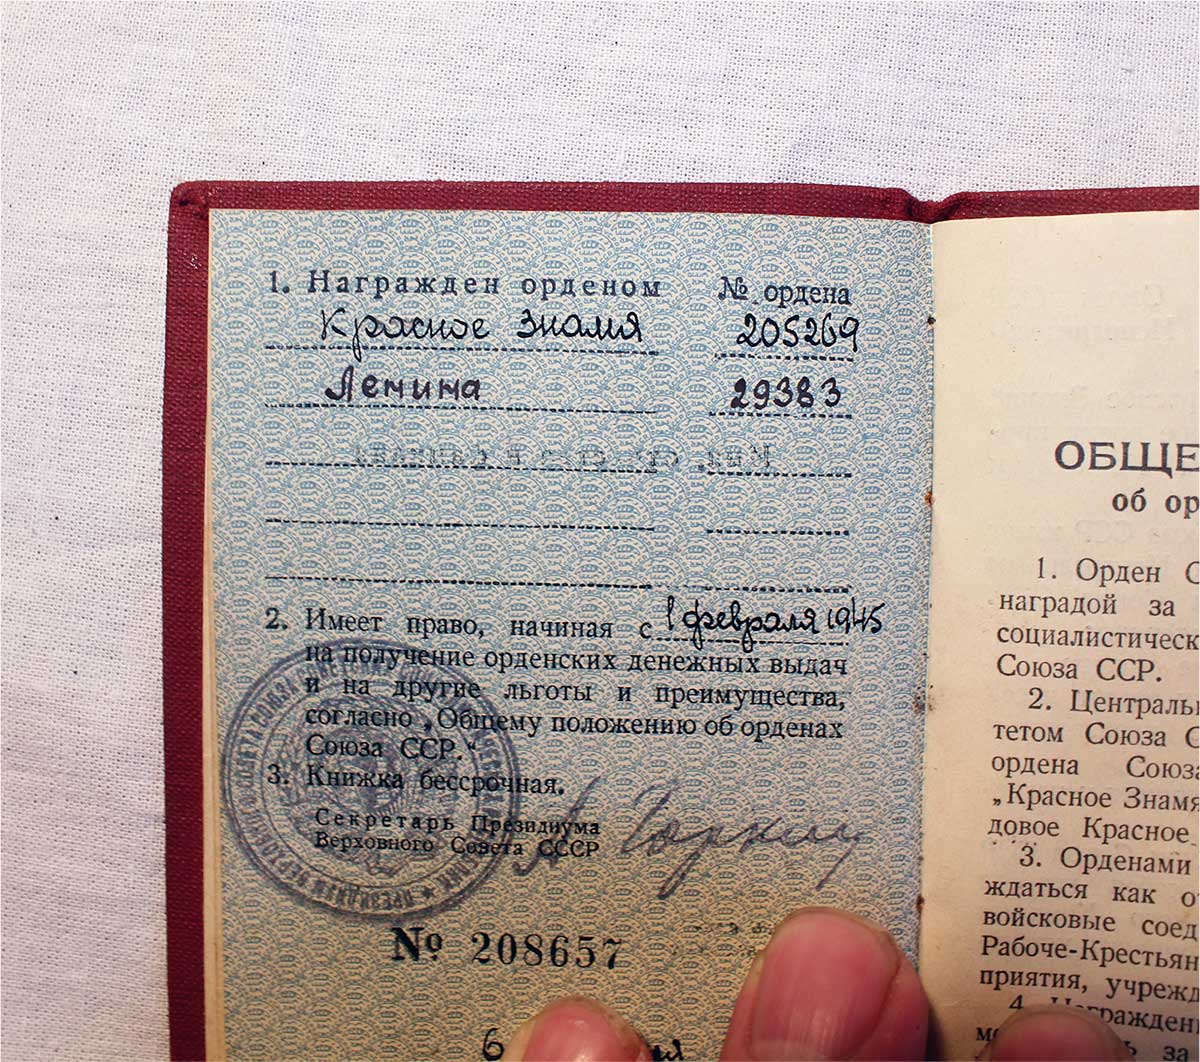 1. Награжден орденом № ордена
Красное Знамя 205269
Ленина 29383
2. Имеет право, начиная с 1 февраля 1945
на получение орденских денежных выдач
и на другие льготы и преимущества,
согласно „Общему положению об орденах
Союза ССР.“
3. Книжка бессрочная.
Секретарь Президиума
Верховного Совета СССР
А Горкин
№ 208657
6
ОБЩЕ
об ор
1. Орден С
наградой за
социалистическ
Союза ССР.
2. Централь
тетом Союза С
ордена Союза
„Красное Знамя
довое Красное
3. Орденами
ждаться как о
войсковые соед
Рабоче-Крестьян
приятия, учрежд
4. Награжден